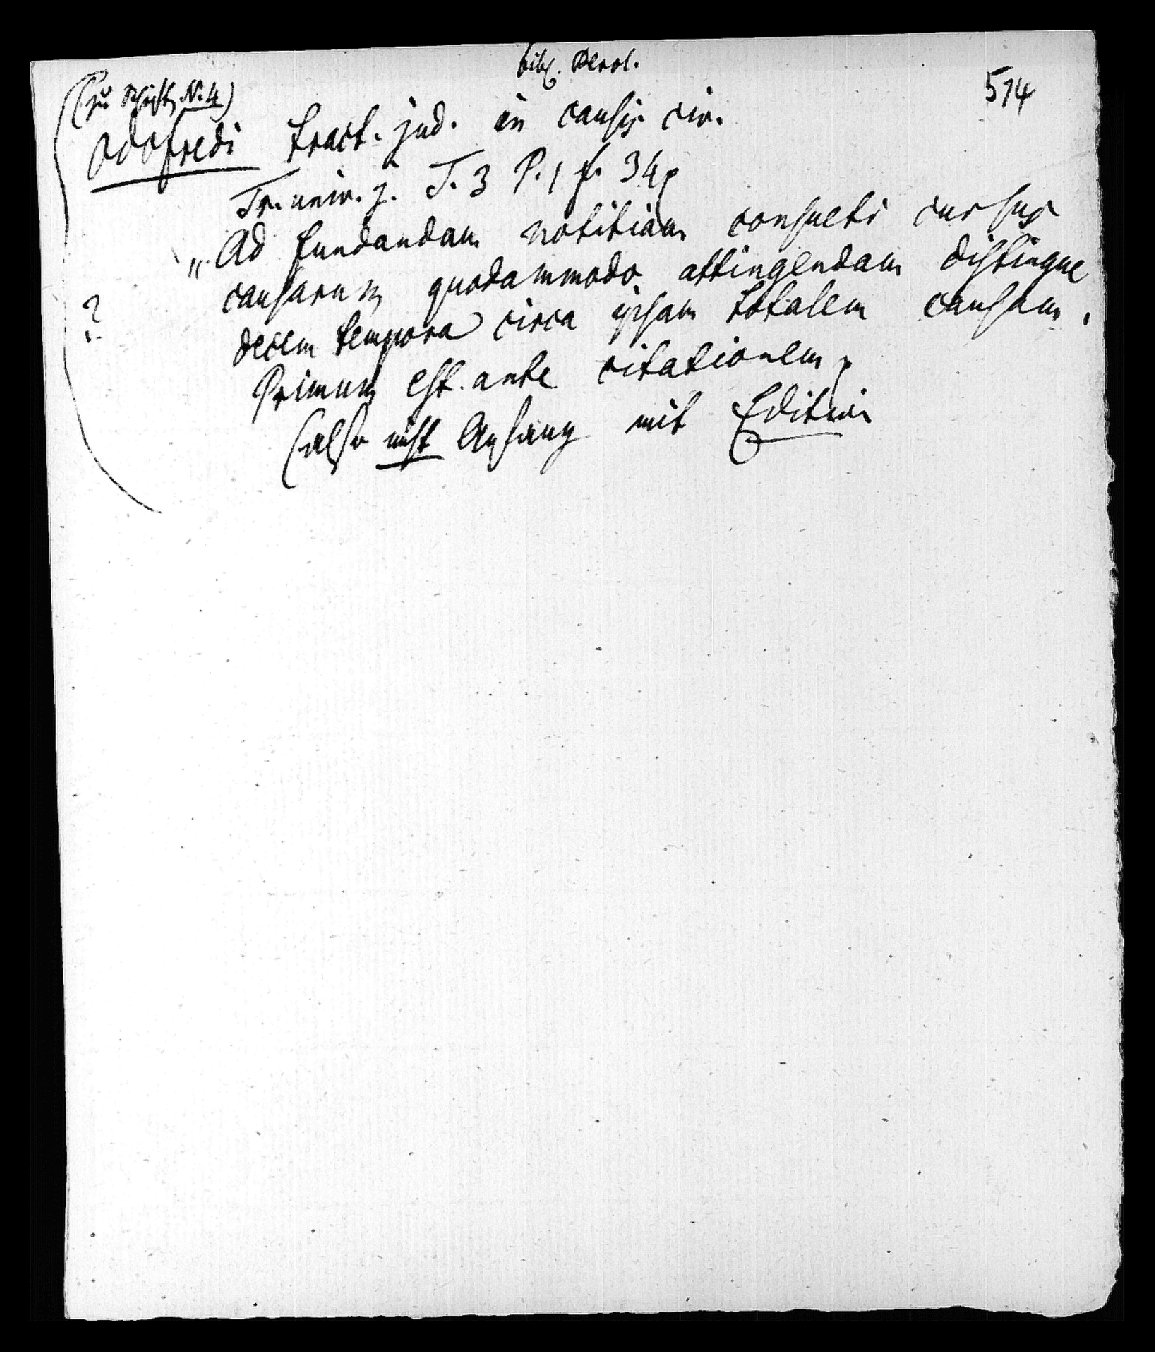 bibl. Berol.
514
(zu Schrift N. 4)
Odofredi tract. jud. in causis civ.
Tr. univ. j. T. 3 P. 1 f. 34
„Ad fundandam notitiam consueti cursus
causarum quodammodo attingendam distingue
?
decem tempora circa ipsam totalem causam.
Primum est ante citationem
(also nicht Anfang mit Edition